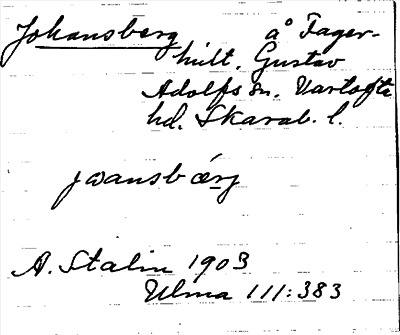 Johansberg å Fager-
hult. Gustav
Adolfs sn. Vartofta
hd. Skarab. l.
jωansbærj
A. Stalin 1903
Ulma 111:383